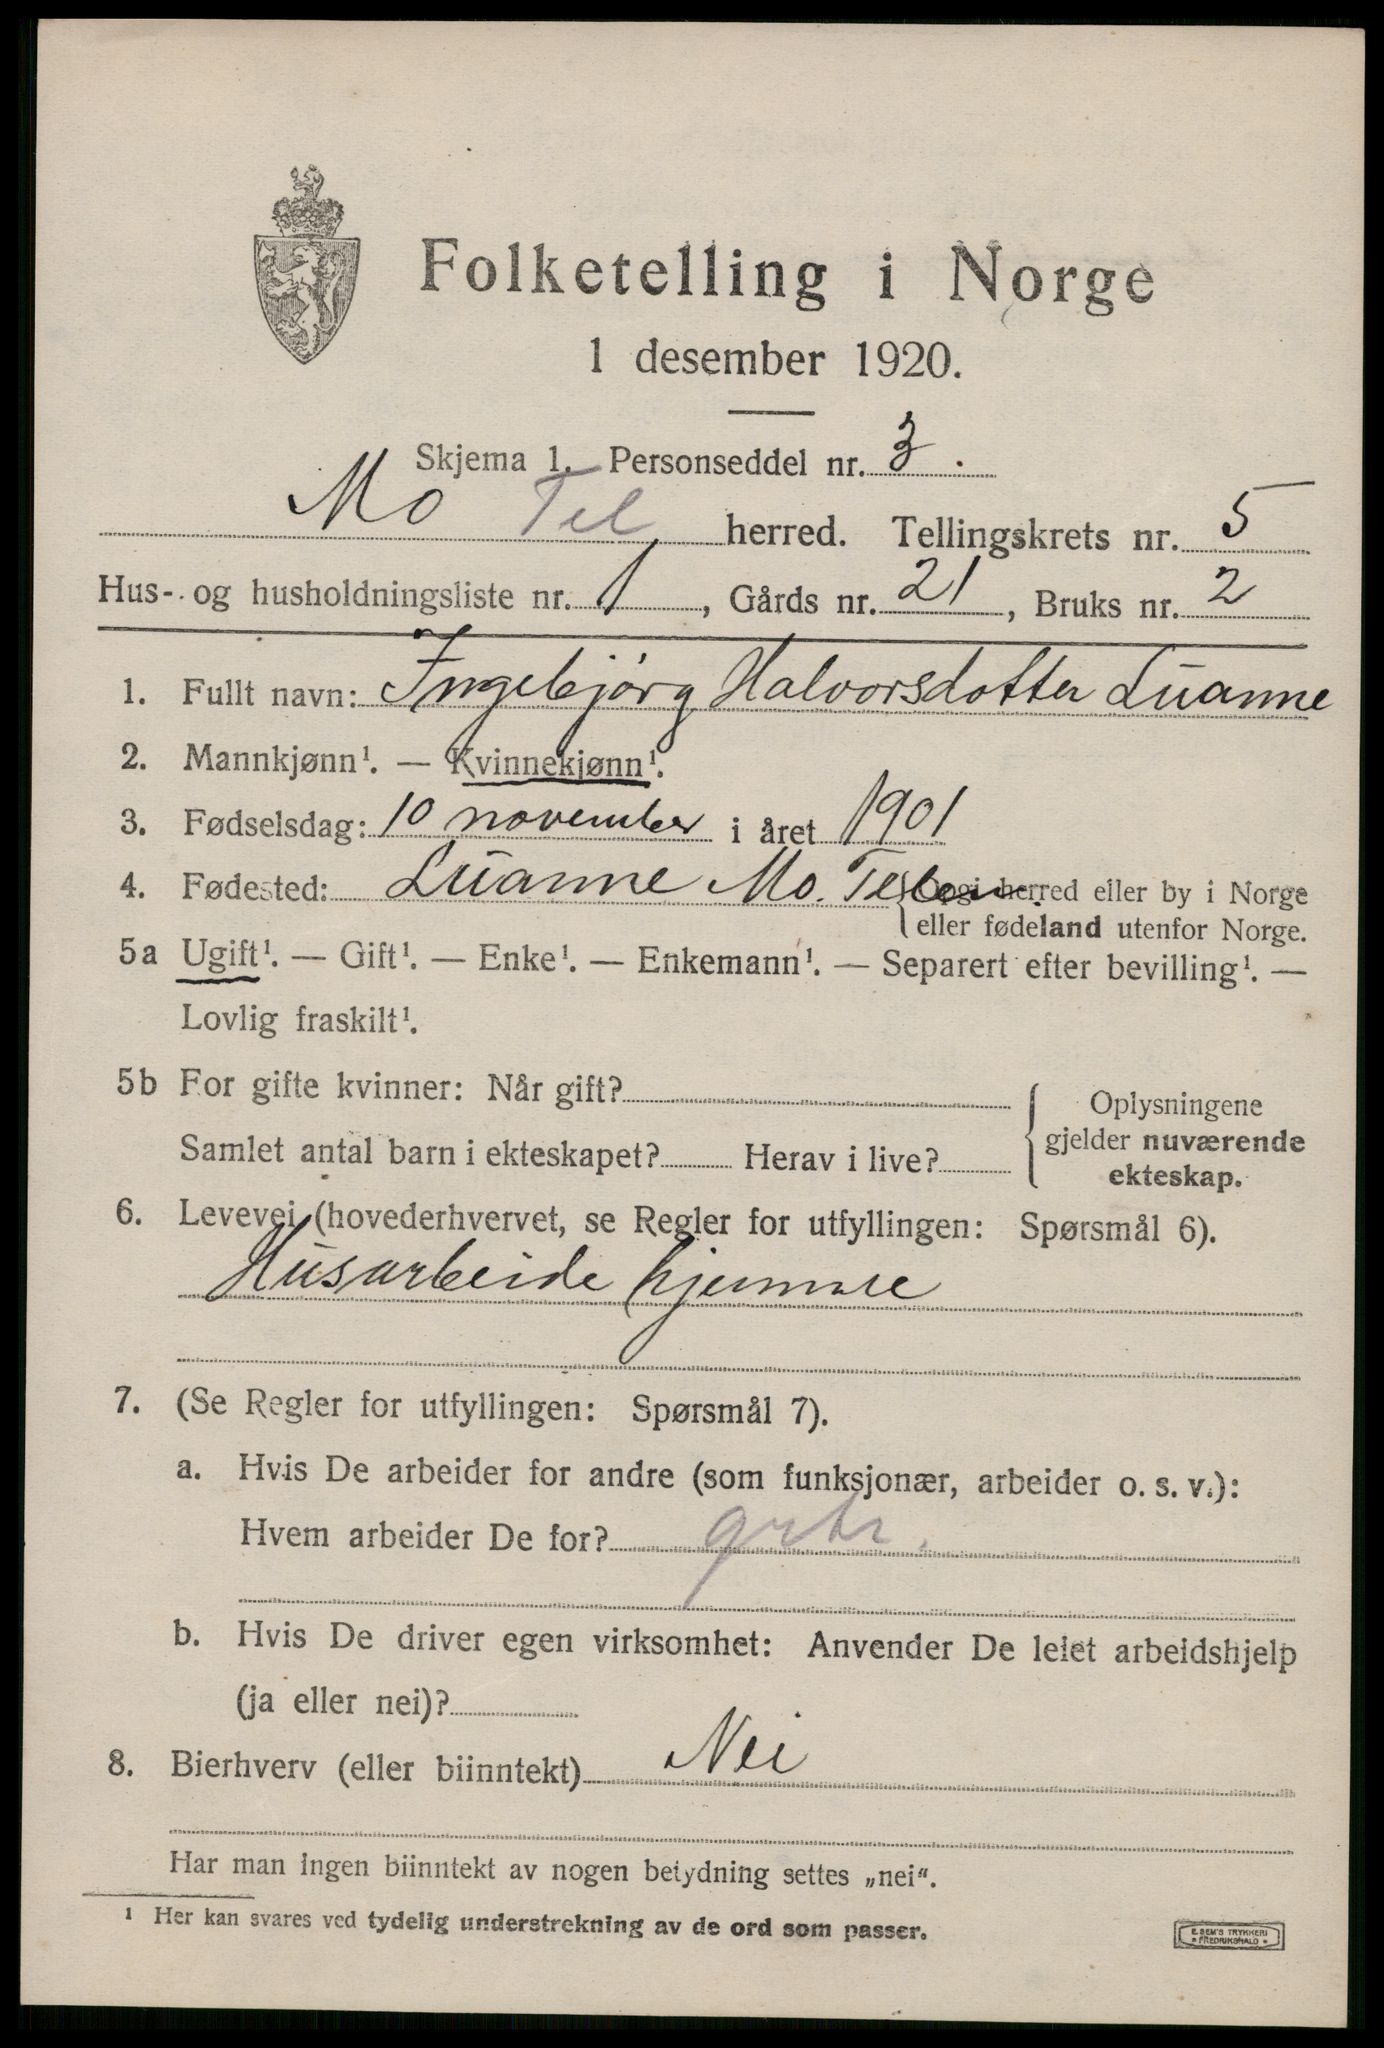 Folketelling i Norge
1 desember 1920.
Skjema 1. Personseddel nr. 3.
Mo Tel herred. Tellingskrets nr. 5
Hus- og husholdningsliste nr. 1, Gårds nr. 21, Bruks nr. 2
1. Fullt navn: Ingebjørg Halvorsdotter Luanne
2. Mannkjønn¹. — Kvinnekjønn¹.
3. Fødselsdag: 10 november i året 1901
4. Fødested: Luanne Mo. {Opgi herred eller by i Norge
eller fødeland utenfor Norge.
5a Ugift¹. — Gift¹. — Enke¹. — Enkemann¹. — Separert efter bevilling¹. —
Lovlig fraskilt¹.
5b For gifte kvinner: Når gift?
Samlet antal barn i ekteskapet? Herav i live?
{ Oplysningene
gjelder nuværende
ekteskap.
6. Levevei (hovederhvervet, se Regler for utfyllingen: Spørsmål 6).
Husarbeide hjemme
7. (Se Regler for utfyllingen: Spørsmål 7).
a. Hvis De arbeider for andre (som funksjonær, arbeider o. s. v.):
Hvem arbeider De for?
b. Hvis De driver egen virksomhet: Anvender De leiet arbeidshjelp
(ja eller nei)?
8. Bierhverv (eller biinntekt) Nei
Har man ingen biinntekt av nogen betydning settes „nei“.
1 Her kan svares ved tydelig understrekning av de ord som passer.
E. SEM'S TRYKKERI
• FREDRIKSHALD •